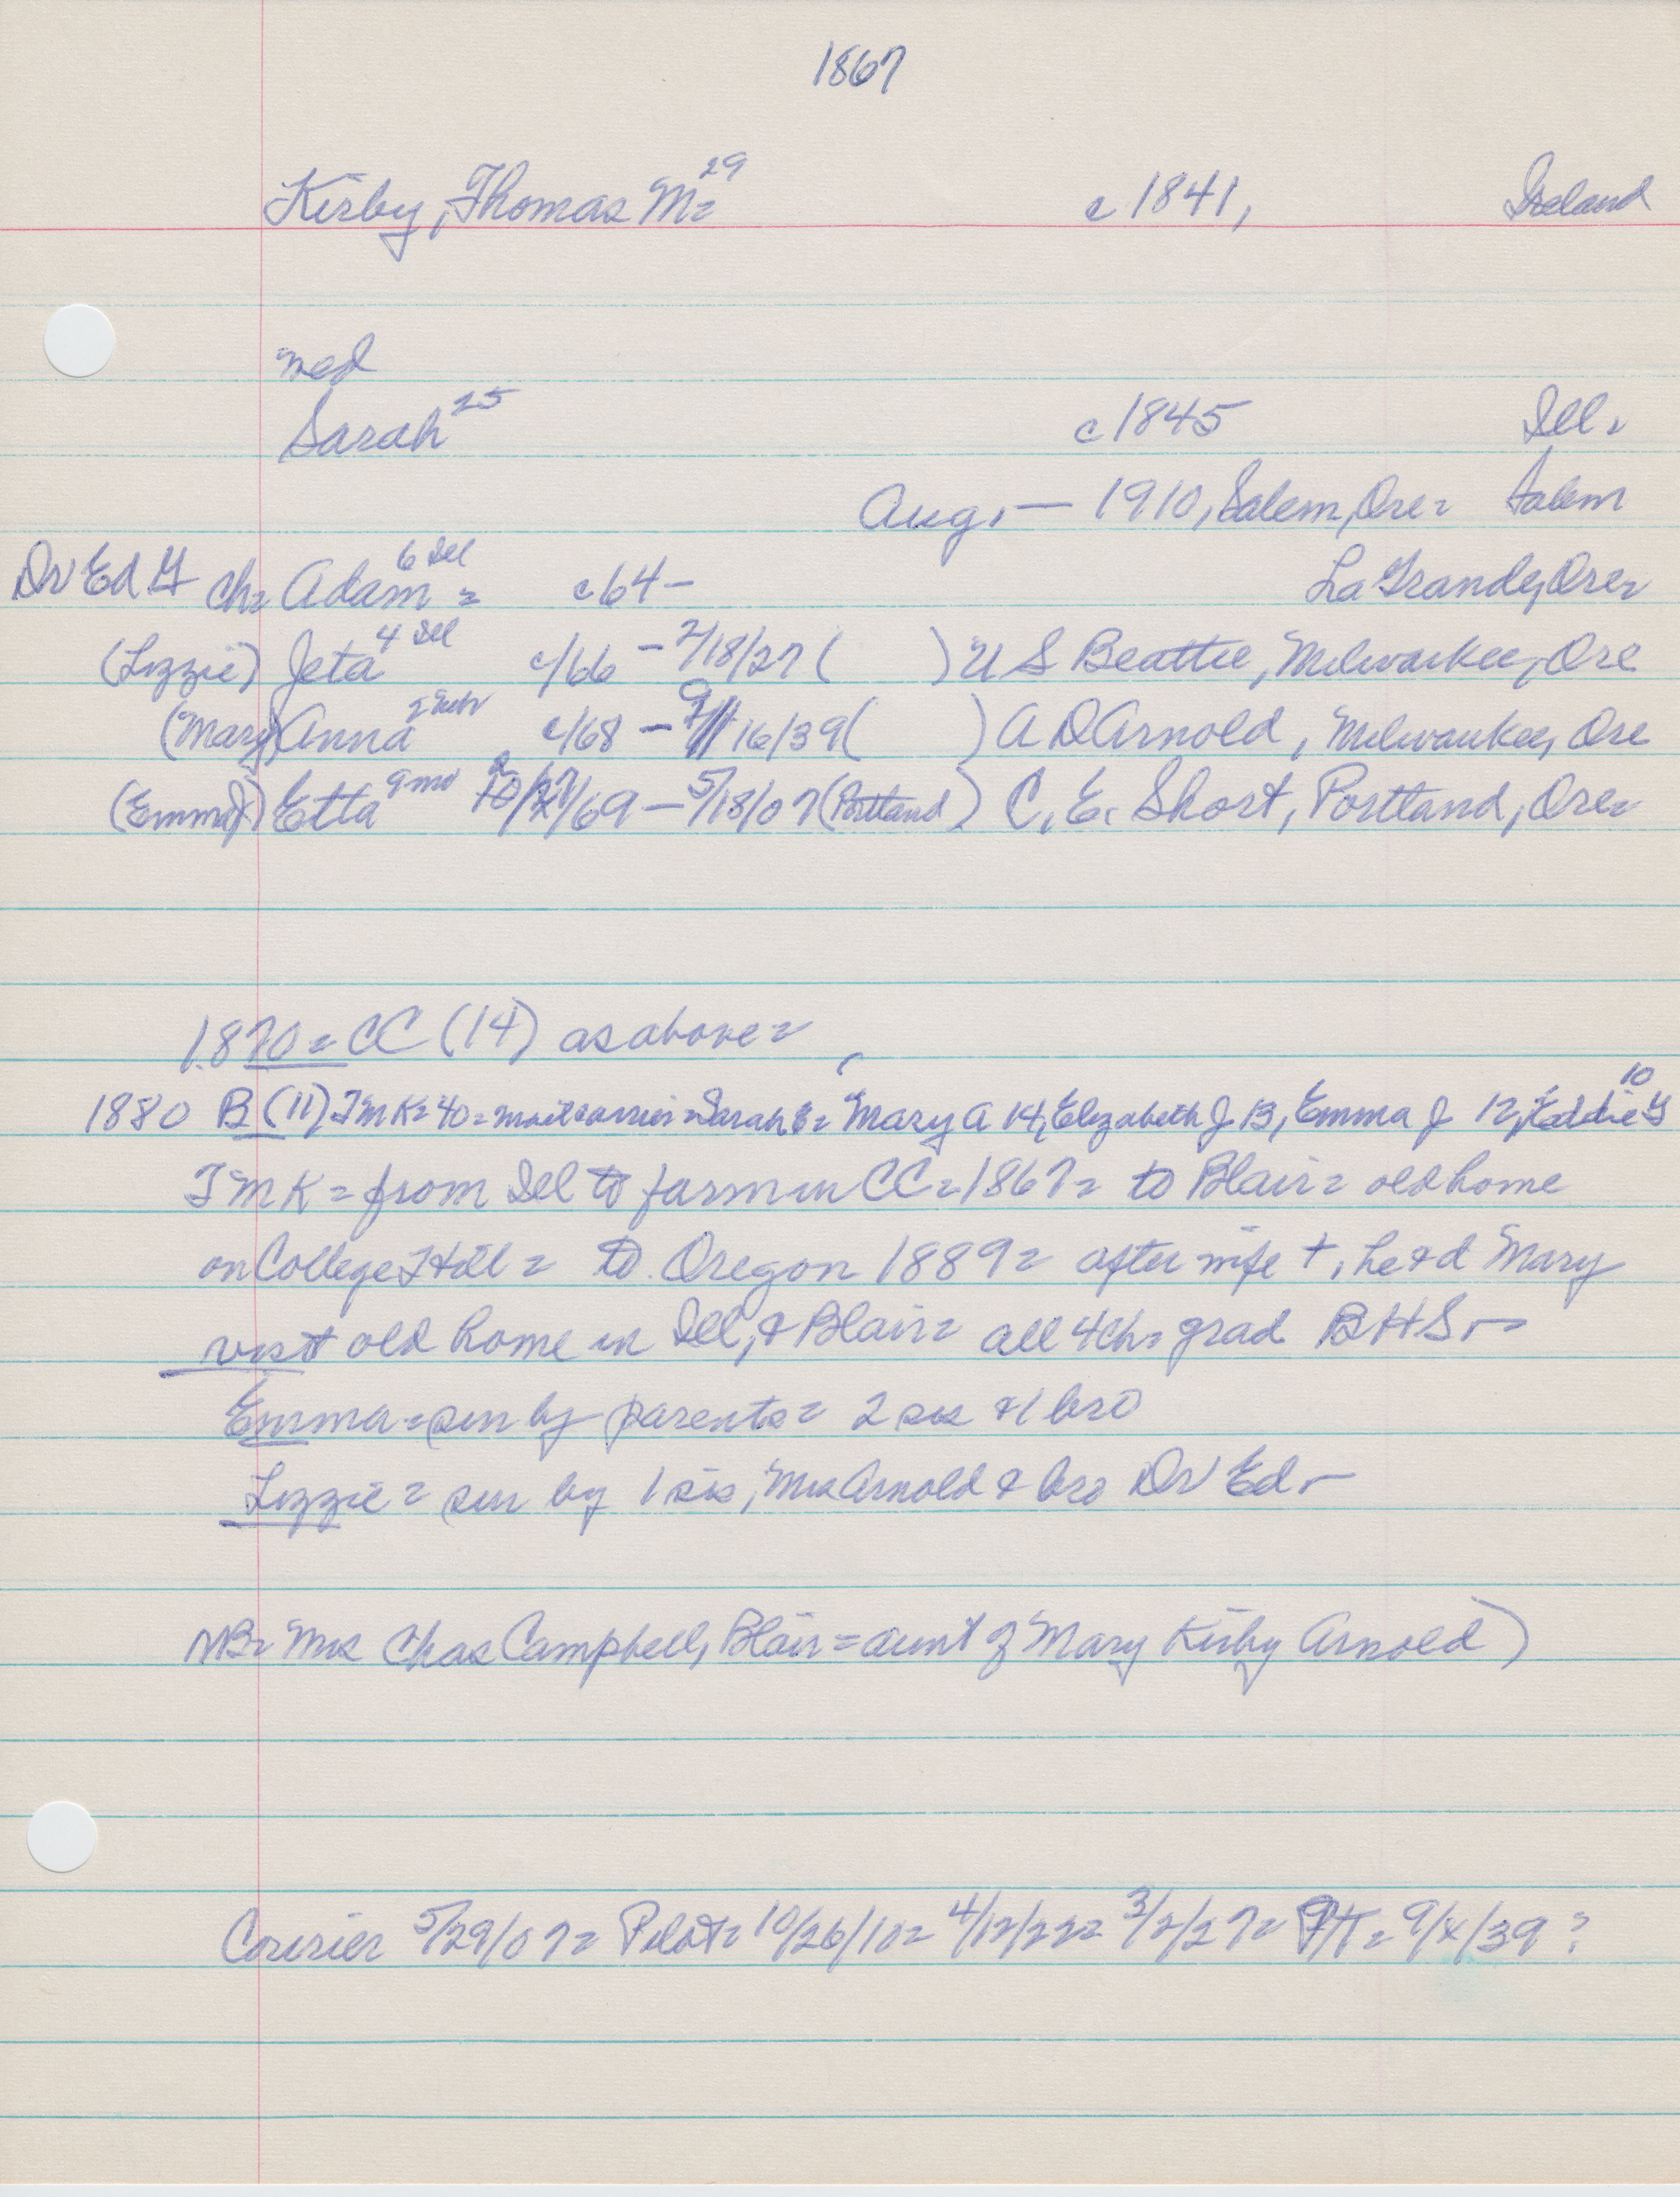 1867
Kirby, Thomas M= 29 c 1841, Ireland
med
Sarah 25 c 1845 Ill.
Aug. — 1910, Salem, Ore= Salem
Dr Ed G ch= Adam 6 Ill = c 64 — La Grande, Ore=
(Lizzie) Jeta 4 Ill c/66 — 2/18/27 ( ) U S Beattie, Milwaukee, Ore
(Mary) Anna 2 Neb c/68 — 16/39 ( ) A D Arnold, Milwaukee, Ore
(Emma J) Etta 9 mo /69 — 5/18/07 (Portland) C. E. Short, Portland, Ore=
1870 = CC (14) as above =
1880 B (11) T M K = 40 = mail carrier = Sarah E = Mary A 14, Elizabeth J 13, Emma J 12, Eddie G 10
T M K = from Ill to farm in CC = 1867 = to Blair = old home
on College Hill = to Oregon 1889 = after wife +, he & d Mary
visit old home in Ill, & Blair = all 4 ch = grad BHS.—
Emma = sur by parents = 2 sis & 1 bro
Lizzie = sur by 1 sis, Mrs Arnold & bro Dr Ed.—
NB= Mrs Chas Campbell, Blair = aunt of Mary Kirby Arnold)
Courier 5/29/07 = Pilot = 10/26/10 = 4/12/22 = 3/2/27 = = 9/4/39 ?